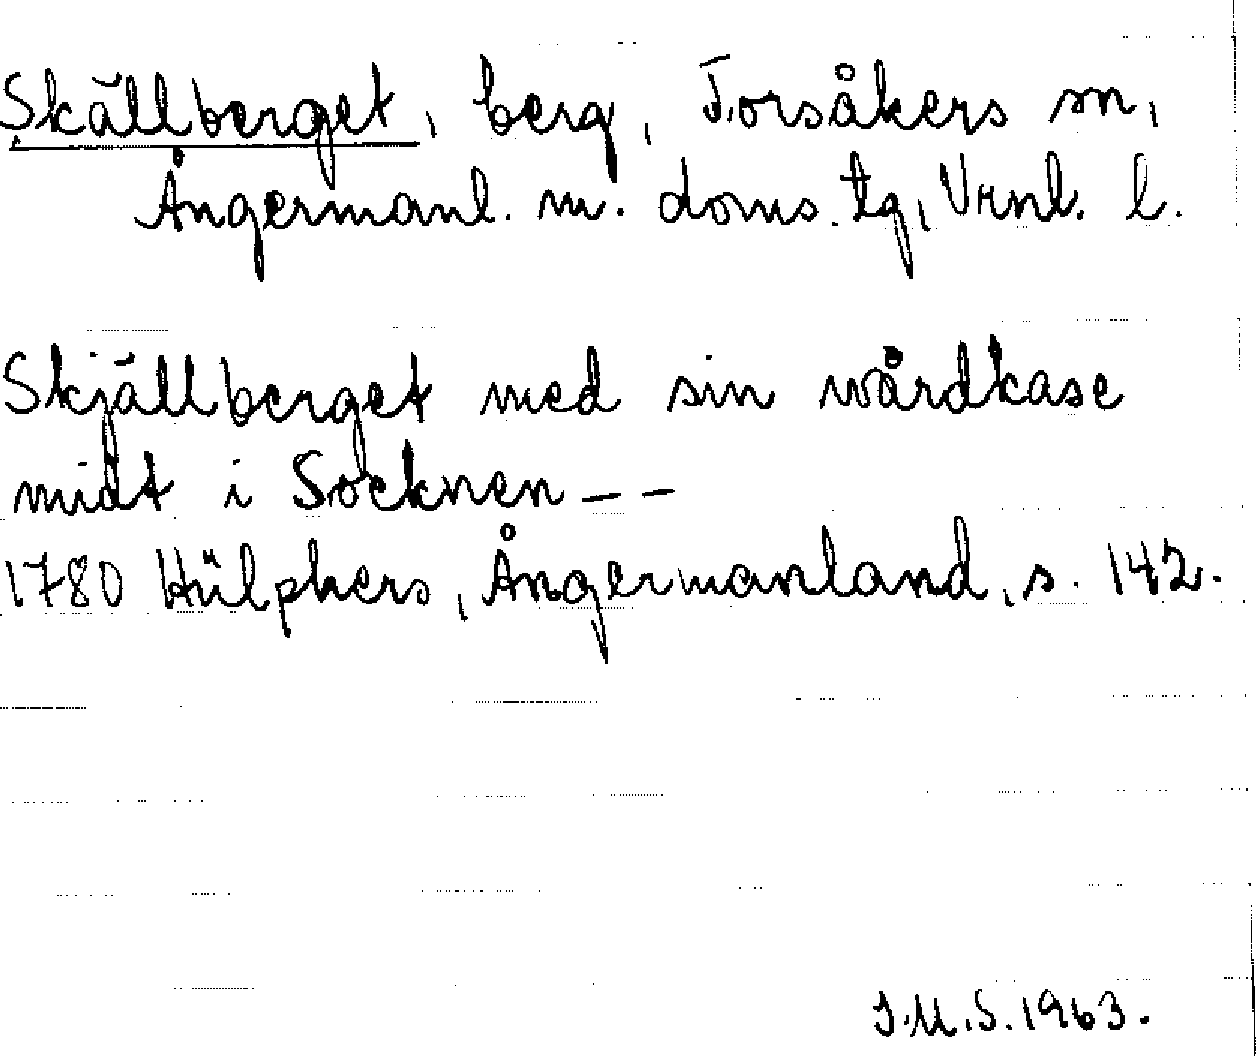 Skällberget, berg, Torsåkers sn,
Ångermanl. m. doms. tg, Vrnl. l.
Skjällberget med sin wårdkase
midt i Socknen – –
1780 Hülphers, Ångermanland, s. 142.
I.M.S. 1963.